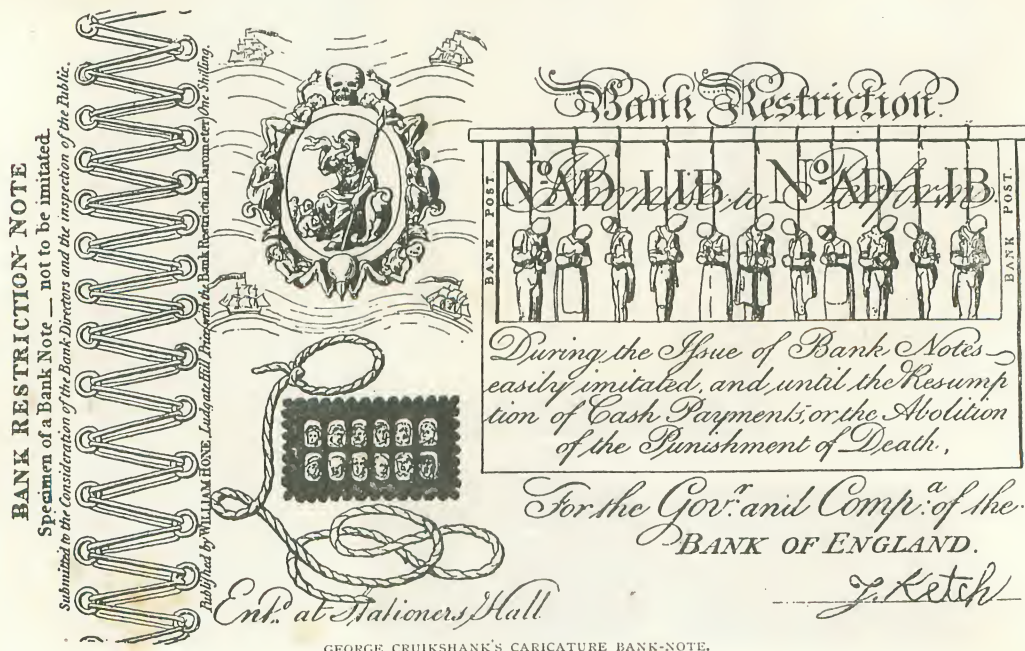 BANK RESTRICTION-NOTE
Specimen of a Bank Note _ not to be imitated.
Submitted to the Consideration of the Bank Directors and the inspection of the Public.
Published by WILLIAM HONE, Ludgate Hill Price with the Bank Restriction Barometer, One Shilling.
Bank Restriction.
BANK POST
No. AD LIB No. AD LIB
I Promise to Perform
BANK POST.
During the Issue of Bank Notes
easily imitated, and until the Resump
tion of Cash Payments, or the Abolition
of the Punishment of Death,
For the Govr. and Compa. of the
BANK OF ENGLAND.
J. Ketch
Entd. at Stationers Hall
GEORGE CRUIKSHANK'S CARICATURE BANK-NOTE.